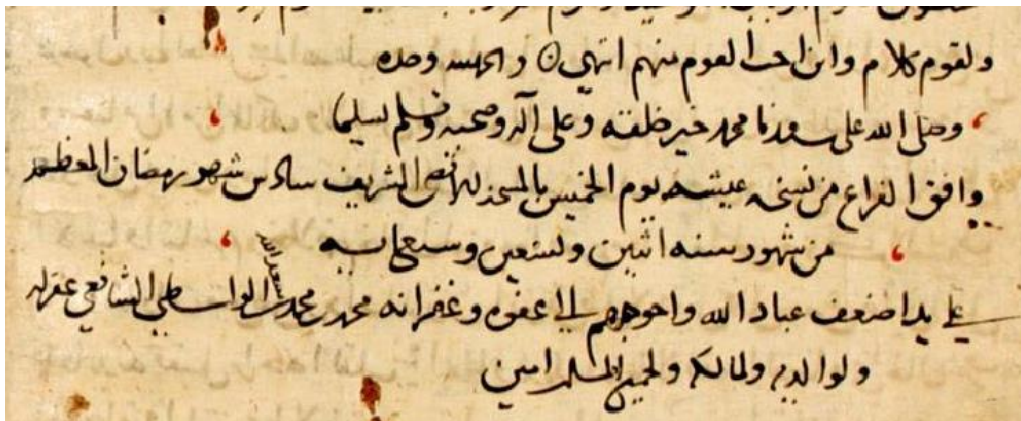 ولقوم كلام وابن اخت القوم منهم انتهى والحمد لله وحده
وصلى الله على سيدنا محمد خير خلقه وعلى آله وصحبه وسلم تسليما
وافق الفراغ من نسخه عيشة يوم الخميس بالمسجد الشريف سادس شهر رمضان المعظم
من شهور سنه اثنين وتسعين وسبعمايه
على يد اضعف عباد الله واحوجهم الى عفوه وغفرانه محمد بن محمد بن الواسطي الشافعي غفر له
ولوالديه ولمالكه ولجميع المسلمين امين